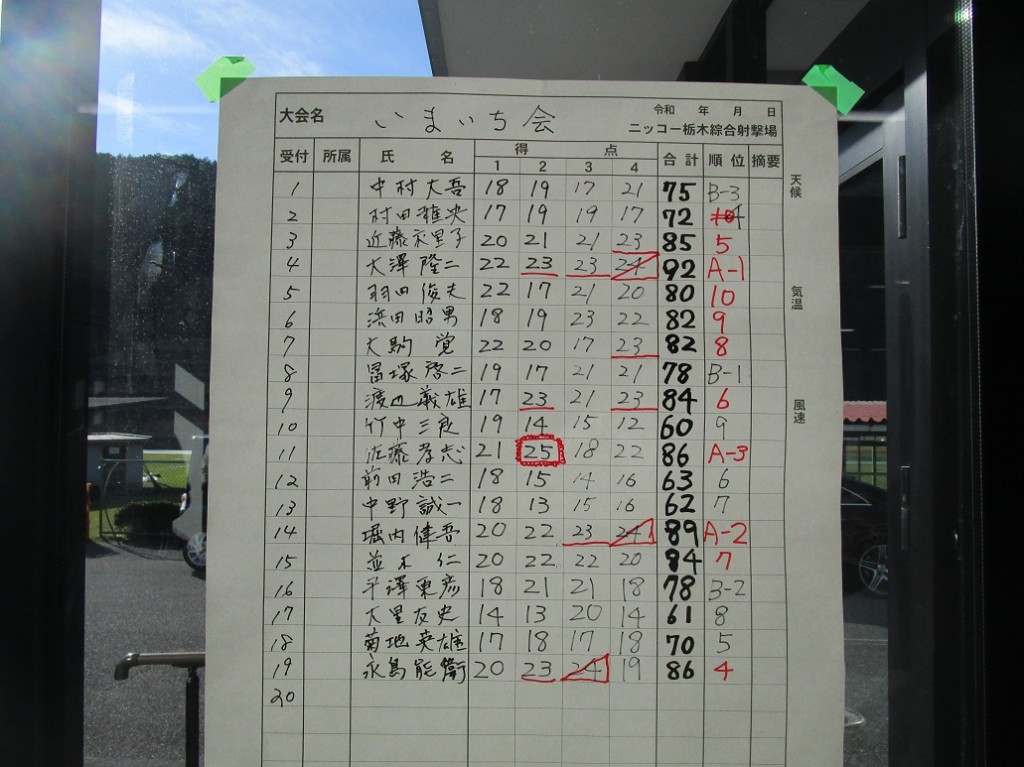 大会名 いまいち会 令和 年 月 日
ニッコー栃木綜合射撃場
受付 所属 氏 名 得 点 合計 順位 摘要
1 2 3 4
天候
1 中村大吾 18 19 17 21 75 B-3
2 村田雅央 17 19 19 17 72 4
3 近藤衣里子 20 21 21 23 85 5
4 大澤隆二 22 23 23 24 92 A-1
気温
5 羽田俊夫 22 17 21 20 80 10
6 浜田昭男 18 19 23 22 82 9
7 大駒 覚 22 20 17 23 82 8
8 冨塚啓二 19 17 21 21 78 B-1
風速
9 渡辺義雄 17 23 21 23 84 6
10 竹中三郎 19 14 15 12 60 9
11 佐藤孝志 21 25 18 22 86 A-3
12 前田浩二 18 15 14 16 63 6
13 中野誠一 18 13 15 16 62 7
14 堀内健吾 20 22 23 24 89 A-2
15 並木 仁 20 22 22 20 84 7
16 平澤東彦 18 21 21 18 78 B-2
17 大里友史 14 13 20 14 61 8
18 菊地英雄 17 18 17 18 70 5
19 永島能衛 20 23 24 19 86 4
20